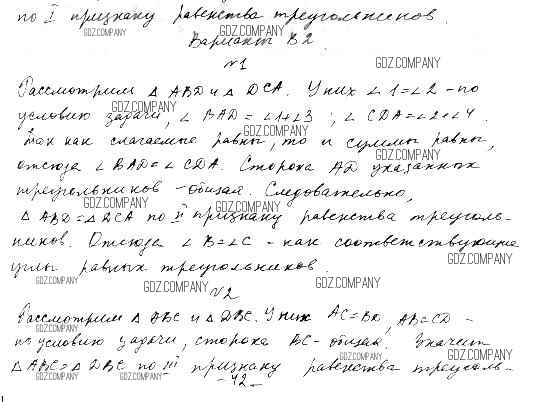 по I признаку равенства треугольников.
GDZ.COMPANY GDZ.COMPANY
Вариант В2.
№1 GDZ.COMPANY
Рассмотрим △ ABD и △ DCA. У них ∠1=∠2 - по
GDZ.COMPANY
условию задачи, ∠ BAD = ∠1+∠3 ; ∠ CDA = ∠2+∠4.
GDZ.COMPANY
Так как слагаемые равны, то и суммы равны,
GDZ.COMPANY
отсюда ∠ BAD=∠ CDA. Сторона AD указанных
треугольников - общая. Следовательно,
GDZ.COMPANY GDZ.COMPANY
△ ABD=△ DCA по II признаку равенства треуголь-
ников. Отсюда ∠ B=∠C - как соответствующие
GDZ.COMPANY
углы равных треугольников.
GDZ.COMPANY GDZ.COMPANY GDZ.COMPANY
№2
Рассмотрим △ ABC и △ DBC. У них AC=BD, AB=CD -
GDZ.COMPANY
по условию задачи, сторона BC - общая. Значит
GDZ.COMPANY GDZ.COMPANY
△ ABC=△ DBC по III признаку равенства треуголь-
GDZ.COMPANY GDZ.COMPANY
- 42 -